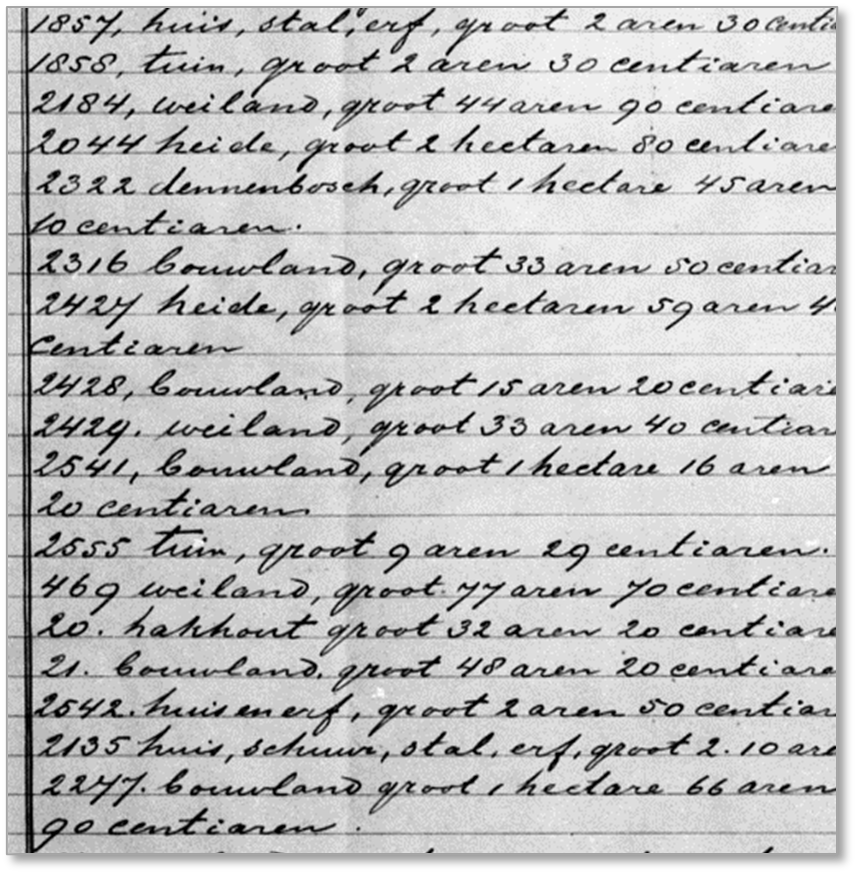 1857, huis, stal, erf, groot 2 aren 30 centi
1858, tuin, groot 2 aren 30 centiaren
2184, weiland, groot 44 aren 90 centiare
2044 heide, groot 2 hectaren 80 centiare
2322 dennenbosch, groot 1 hectare 45 aren
10 centiaren.
2316 bouwland, groot 33 aren 50 centiar
2427 heide, groot 2 hectaren 59 aren 4
centiaren
2428, bouwland, groot 15 aren 20 centiare
2429. weiland, groot 33 aren 40 centiar
2541, bouwland, groot 1 hectare 16 aren
20 centiaren
2555 tuin, groot 9 aren 29 centiaren.
469 weiland, groot 77 aren 70 centiare
20. hakhout groot 32 aren 20 centiare
21. bouwland. groot 48 aren 20 centiare
2542. huis en erf, groot 2 aren 50 centiar
2135 huis, schuur, stal, erf, groot 2. 10 are
2247. bouwland groot 1 hectare 66 aren
90 centiaren.